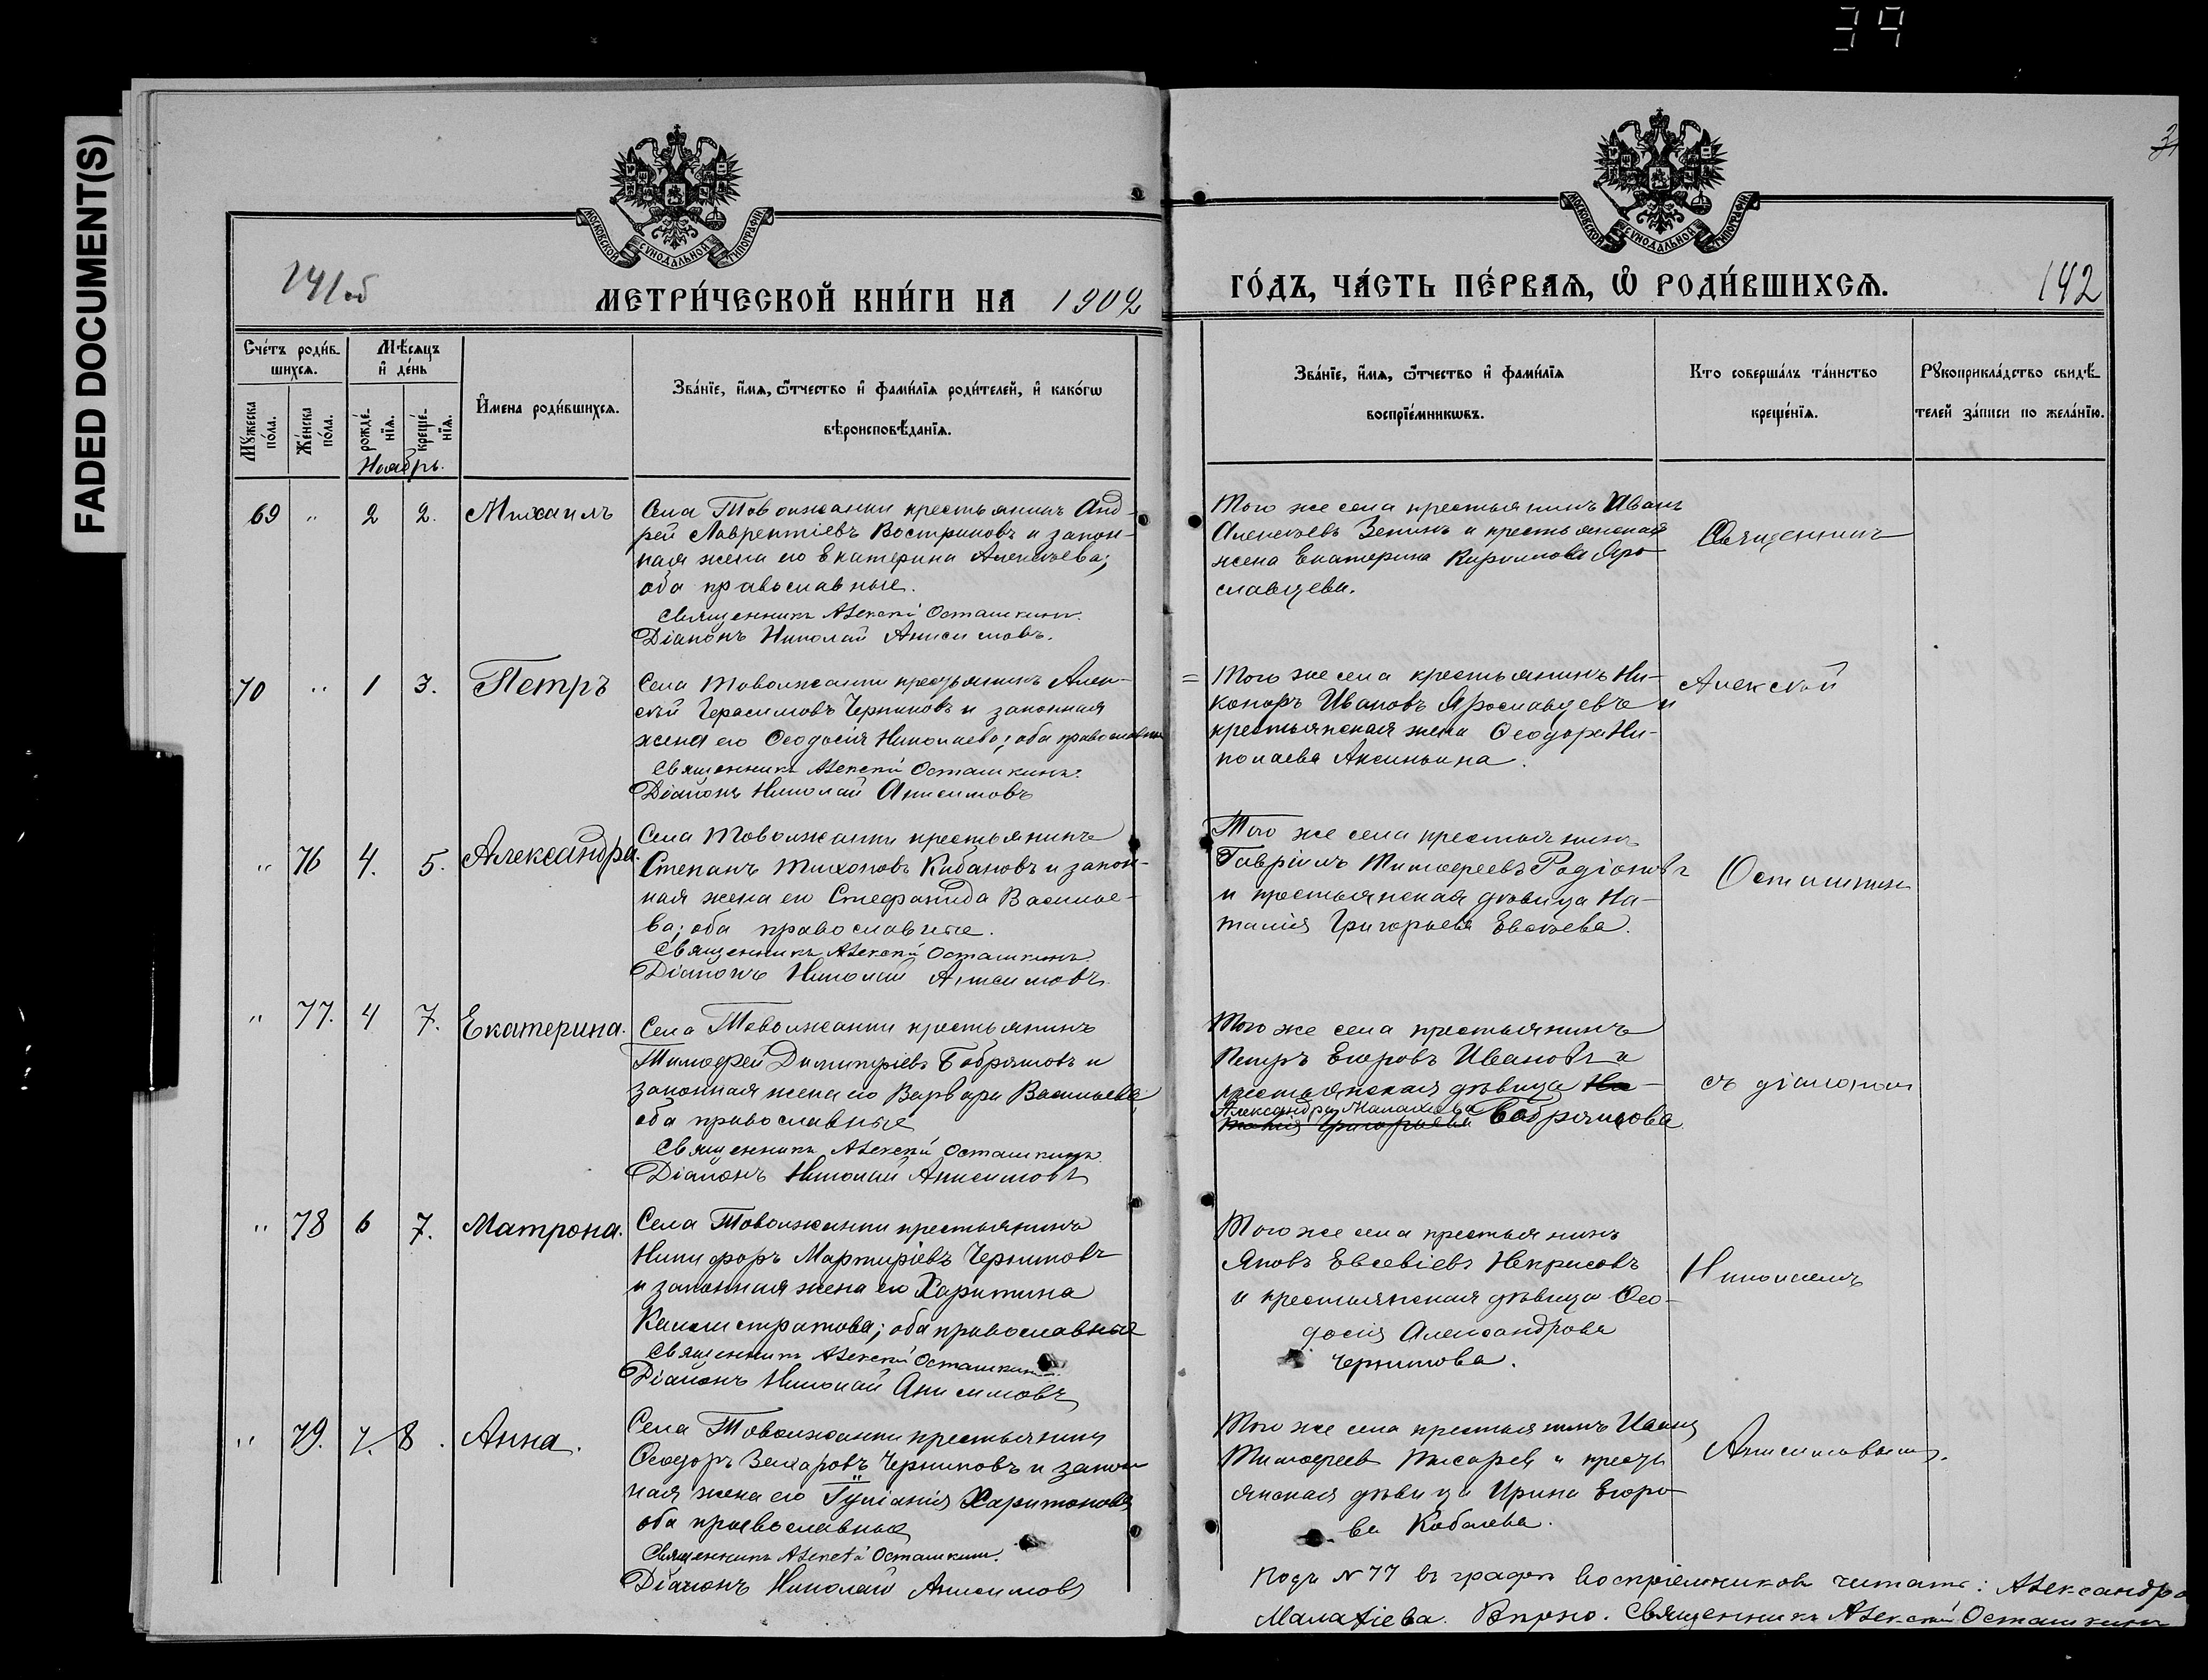 39
FADED DOCUMENT(S)
МОСКОВСКОЙ СѴНОДАЛЬНОЙ ТИПОГРАФІИ
МОСКОВСКОЙ СѴНОДАЛЬНОЙ ТИПОГРАФІИ
141об
МЕТРИ́ЧЕСКОЙ КНИ́ГИ НА 1902
ГО́ДЪ, ЧА́СТЬ ПЕ́РВАѦ, Ѡ҆ РОДИ́ВШИХСѦ.
142
Сче́тъ роди́в-
шихсѧ.
Мѣ́сѧцъ
и҆ де́нь
Мꙋ́жеска
по́ла.
Же́нска
по́ла.
рожде́-
нїѧ.
креще́-
нїѧ.
Ноябрь.
И҆мена роди́вшихсѧ.
Зва́нїе, и҆́мѧ, ѻ҆́тчество и҆ фами́лїѧ роди́телей, и҆ како́гѡ
вѣроисповѣ́данїѧ.
Зва́нїе, и҆́мѧ, ѻ҆́тчество и҆ фами́лїѧ
воспрїе́мникѡвъ.
Кто соверша́лъ та́инство
креще́нїѧ.
Рꙋкоприкла́дство свидѣ́-
телей за́писи по жела́нїю.
69 " 2 2. Михаилъ
Села Товолжанки крестьянинъ Анд-
рей Лаврентіевъ Востриковъ и закон-
ная жена его Екатерина Алексѣева;
оба православные.
Священникъ Алексѣй Осташкинъ.
Діаконъ Николай Анисимовъ.
Того же села крестьянинъ Иванъ
Алексѣевъ Зенинъ и крестьянская
жена Екатерина Кирилова Яро-
славцева.
Священникъ
70 " 1 3. Петръ
Села Товолжанки крестьянинъ Алек-
сѣй Герасимовъ Черниковъ и законная
жена его Ѳеодосія Николаева; оба православные
Священникъ Алексѣй Осташкинъ.
Діаконъ Николай Анисимовъ
= Того же села крестьянинъ Ни-
каноръ Ивановъ Ярославцевъ и
крестьянская жена Ѳеодора Ни-
колаева Аксиньина.
Алексѣй
" 76 4. 5. Александра.
Села Товолжанки крестьянинъ
Степанъ Тихоновъ Кабановъ и закон-
ная жена его Стефанида Василье-
ва; оба православные.
Священникъ Алексѣй Осташкинъ.
Діаконъ Николай Анисимовъ
Того же села крестьянинъ
Гавріилъ Тимоѳеевъ Родіоновъ
и крестьянская дѣвица На-
талія Григорьева Евсѣева.
Осташкинъ
" 77. 4 7. Екатерина.
Села Товолжанки крестьянинъ
Тимоѳей Димитріевъ Бобряшовъ и
законная жена его Варвара Васильева
оба православные
Священникъ Алексѣй Осташкинъ.
Діаконъ Николай Анисимовъ
Того же села крестьянинъ
Петръ Егоровъ Ивановъ и
крестьянская дѣвица На-
Александра Малахіева
талія Григорьева Бобряшова
съ діакономъ
" 78 6 7. Матрона.
Села Товолжанки крестьянинъ
Никифоръ Мартиріевъ Черниковъ
и законная жена его Харитина
Каллистратова; оба православные
Священникъ Алексѣй Осташкинъ.
Діаконъ Николай Анисимовъ
Того же села крестьянинъ
Яковъ Евсевіевъ Некрасовъ
и крестьянская дѣвица Ѳео-
досія Александрова
Черникова.
Николаемъ
" 79. 7. 8. Анна.
Села Товолжанки крестьянинъ
Ѳеодоръ Захаровъ Черниковъ и закон
ная жена его Іуліанія Харитонова
оба православные
Священникъ Алексѣй Осташкинъ.
Діаконъ Николай Анисимовъ
Того же села крестьянинъ
Тимоѳеев и кресть
янская дѣвица Ирина Егоро-
ва Кобалева.
Анисимовымъ.
Подъ №77 въ графѣ воспріемниковъ читать: Александра
Малахіева. Вѣрно. Священникъ Алексѣй Осташкинъ